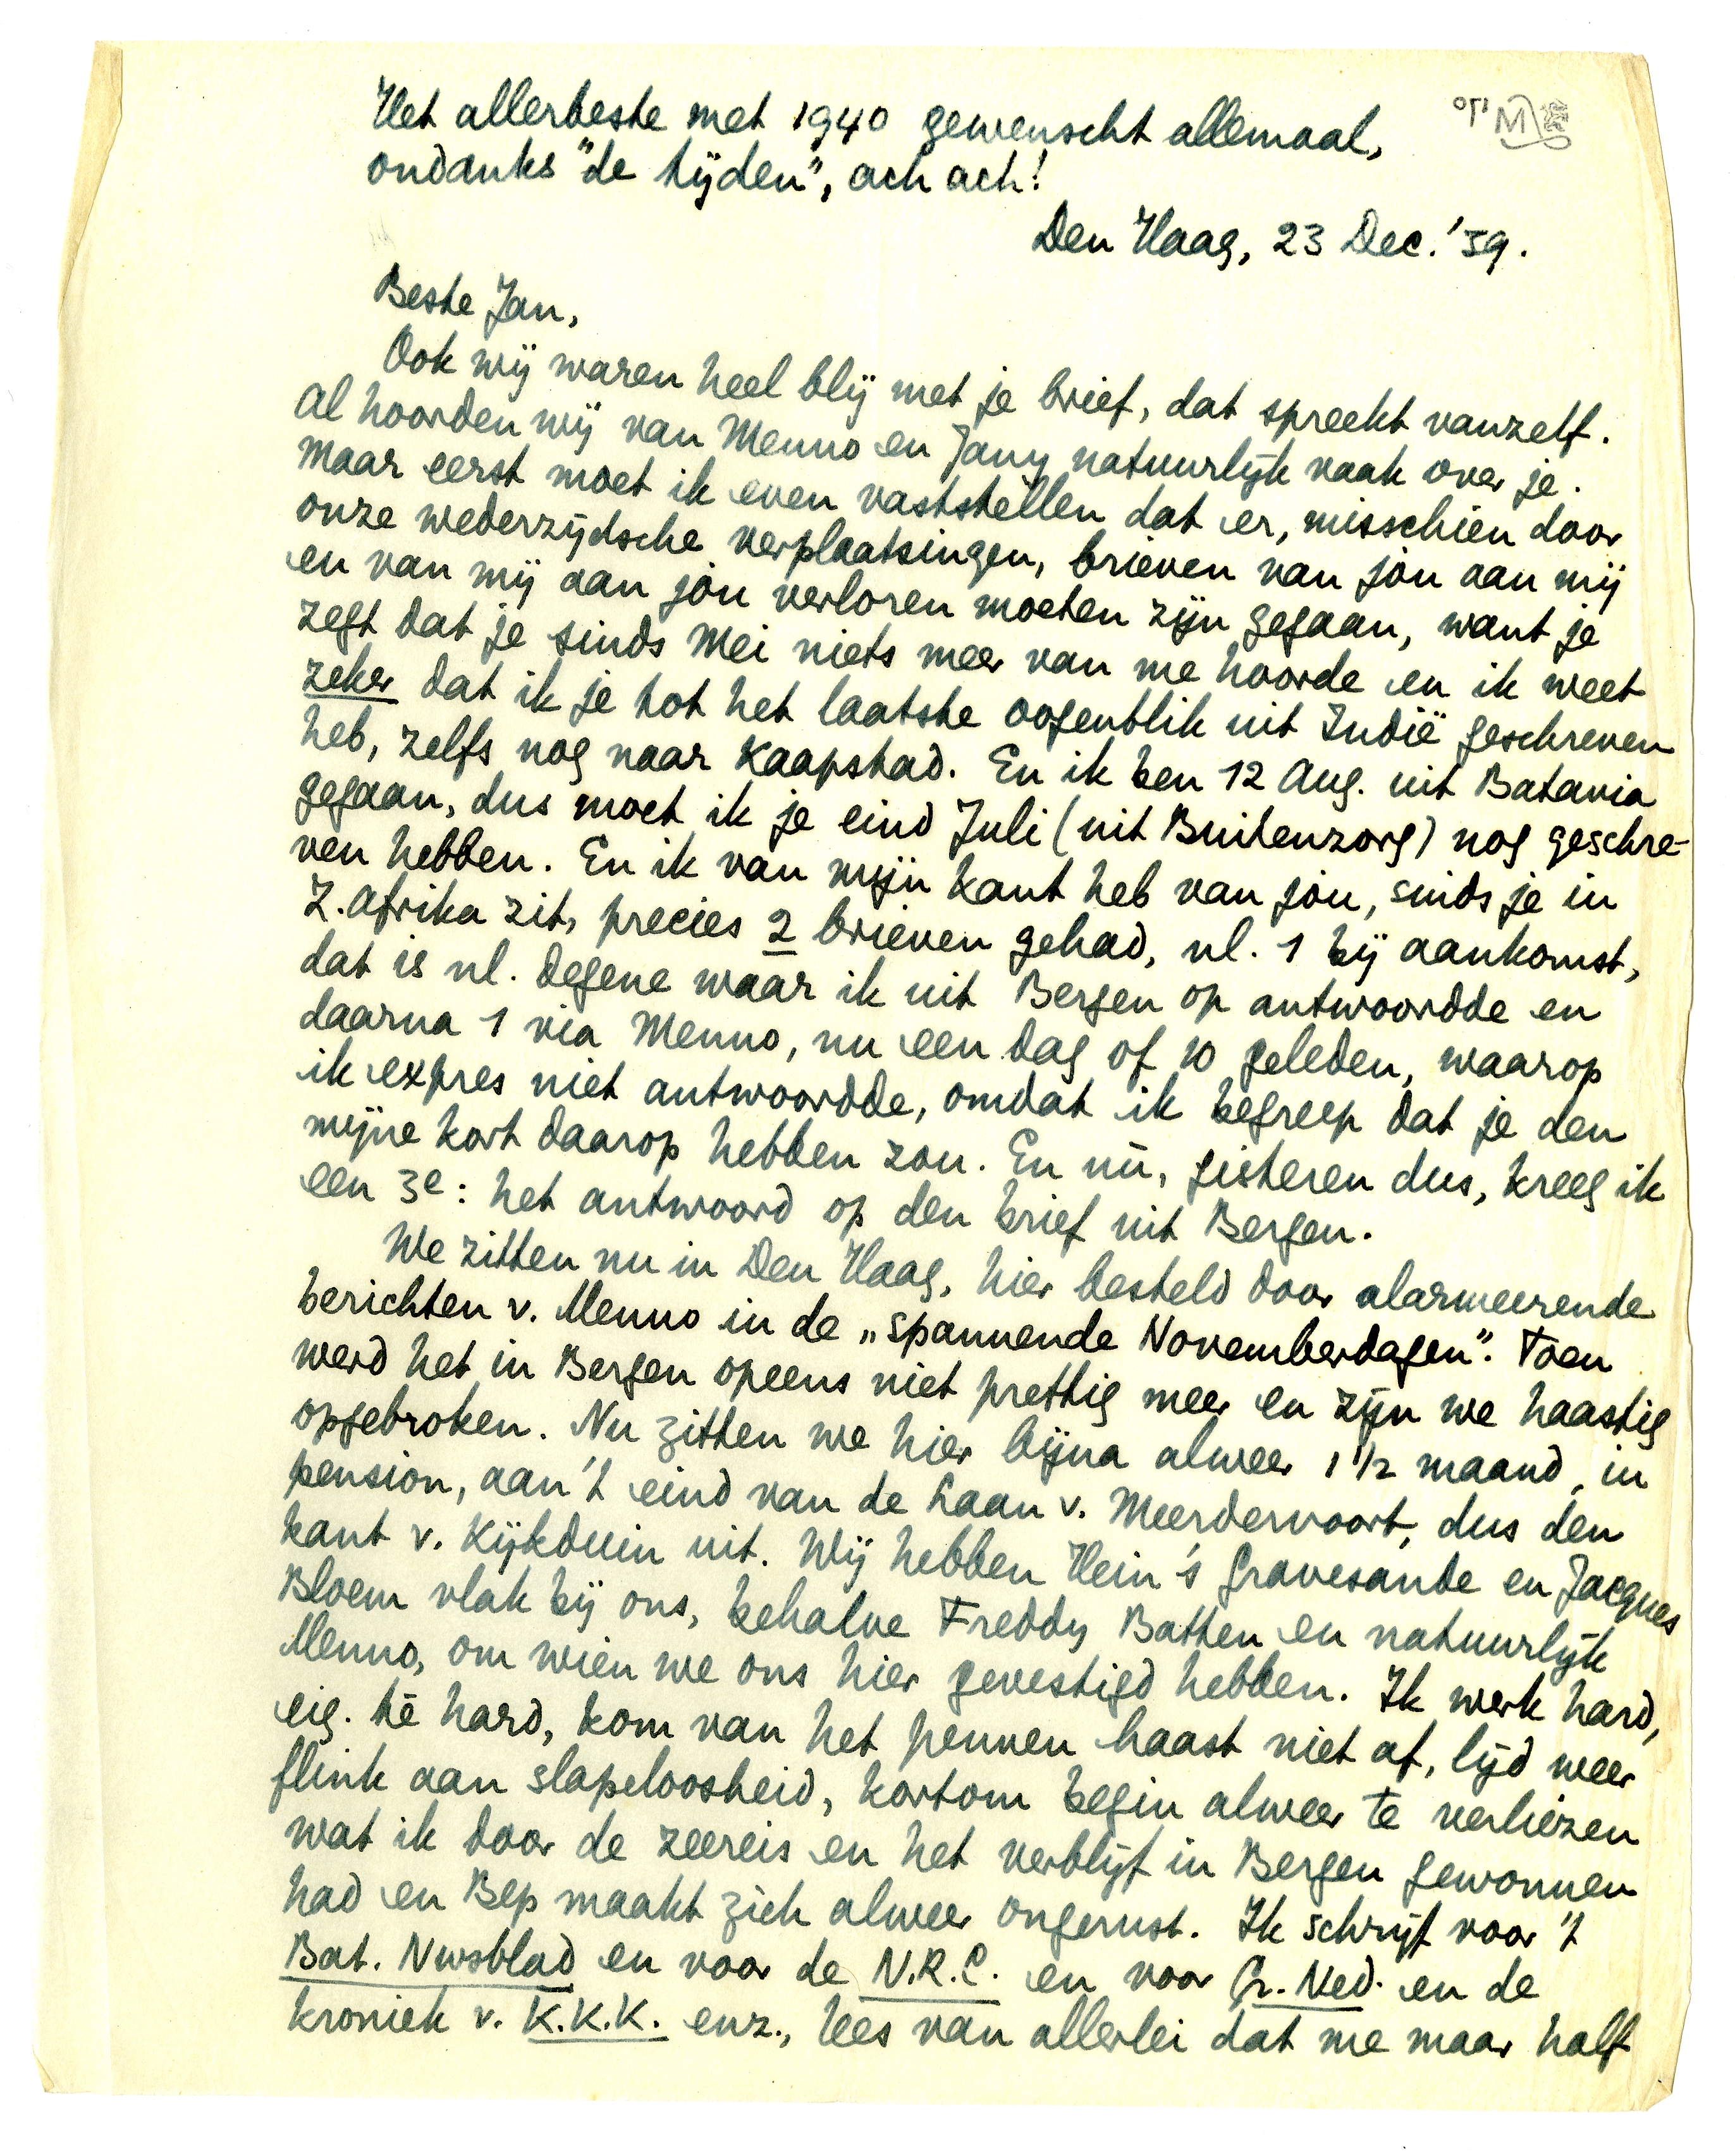 Het allerbeste met 1940 gewenscht allemaal,
ondanks "de tijden", ach ach!
Den Haag, 23 Dec. '39.
Beste Jan,
Ook wij waren heel blij met je brief, dat spreekt vanzelf.
Al hoorden wij van Menno en Jany natuurlijk vaak over je.
Maar eerst moet ik even vaststellen dat er, misschien door
onze wederzijdsche verplaatsingen, brieven van jòu aan mij
en van mij aan jòu verloren moeten zijn gegaan, want je
zegt dat je sinds Mei niets meer van me hoorde en ik weet
zeker dat ik je tot het laatste oogenblik uit Indië geschreven
heb, zelfs nog naar Kaapstad. En ik ben 12 Aug. uit Batavia
gegaan, dus moet ik je eind Juli (uit Buitenzorg) nog geschre-
ven hebben. En ik van mijn kant heb van jòu, sinds je in
Z. Afrika zit, precies 2 brieven gehad, nl. 1 bij aankomst,
dat is nl. degene waar ik uit Bergen op antwoordde en
daarna 1 via Menno, nu een dag of 10 geleden, waarop
ik expres niet antwoordde, omdat ik begreep dat je den
mijne kort daarop hebben zou. En nù, gisteren dus, kreeg ik
een 3e: het antwoord op den brief uit Bergen.
We zitten nu in Den Haag, hier besteld door alarmeerende
berichten v. Menno in de „spannende Novemberdagen". Toen
werd het in Bergen opeens niet prettig meer en zijn we haastig
opgebroken. Nu zitten we hier bijna alweer 1 1/2 maand, in
pension, aan 't eind van de Laan v. Meerdervoort, dus den
kant v. Kijkduin uit. Wij hebben Hein 's Gravesande en Jacques
Bloem vlak bij ons, behalve Freddy Batten en natuurlijk
Menno, om wien we ons hier gevestigd hebben. Ik werk hard,
eig. té hard, kom van het pennen haast niet af, lijd weer
flink aan slapeloosheid, kortom begin alweer te verliezen
wat ik door de zeereis en het verblijf in Bergen gewonnen
had en Bep maakt zich alweer ongerust. Ik schrijf voor 't
Bat. Nwsblad en voor de N.R.C. en voor Gr. Ned. en de
kroniek v. K.K.K. enz., lees van allerlei dat me maar half